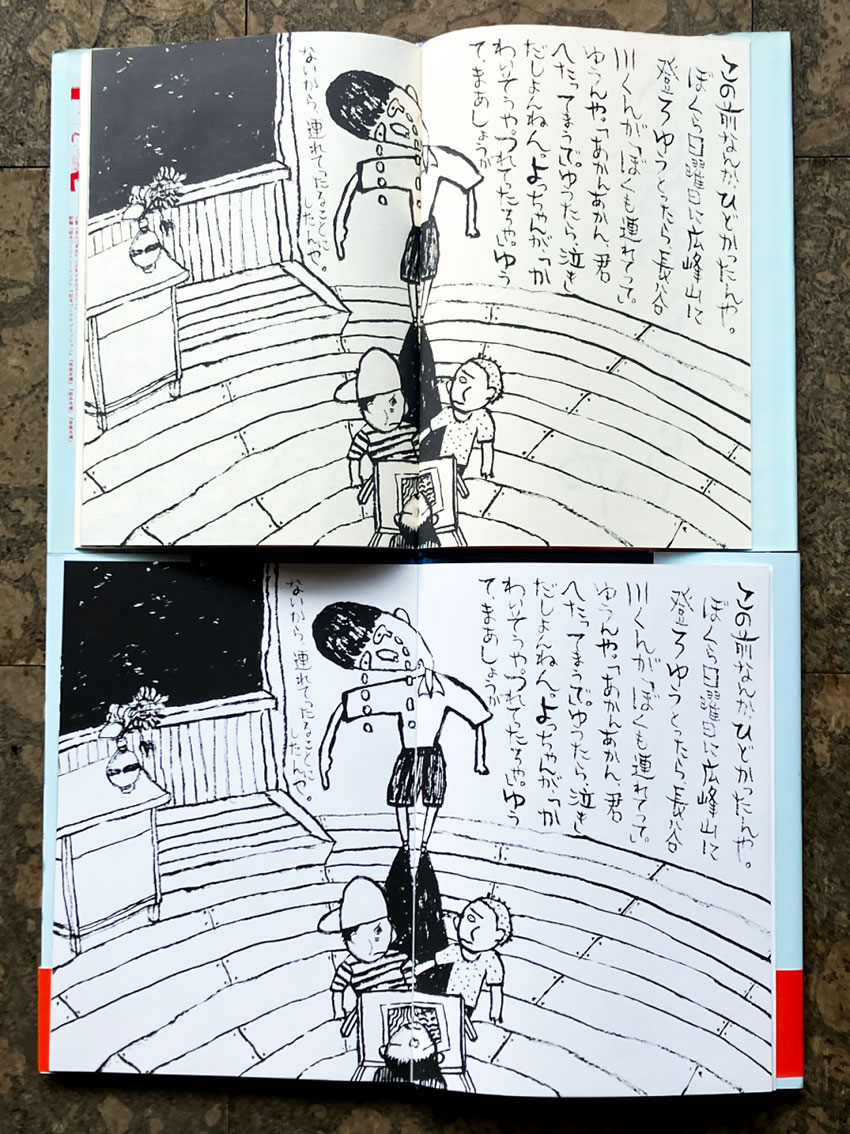 この前なんか、ひどかったんや。
ぼくら日曜日に広峰山に
登ろゆうとったら、長谷
川くんが「ぼくも連れてって。」
ゆうんや。「あかんあかん、君
へたってまうで。」ゆったら、泣き
だしよんねん。よっちゃんが、「か
わいそうや。つれてったろや。」ゆう
て、まあしょうが
ないから、連れてったることに
したんや。
この前なんか、ひどかったんや。
ぼくら日曜日に広峰山に
登ろゆうとったら、長谷
川くんが「ぼくも連れてって。」
ゆうんや。「あかんあかん、君
へたってまうで。」ゆったら、泣き
だしよんねん。よっちゃんが、「か
わいそうや。つれてったろや。」ゆう
て、まあしょうが
ないから、連れてったることに
したんや。